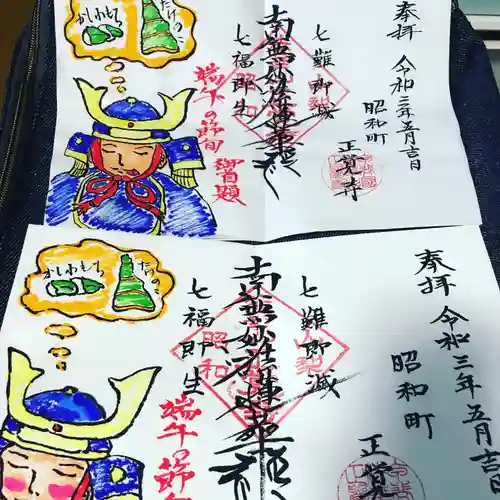 奉拝
令和三年五月吉日
昭和町
正覚寺
七難即滅
南無妙法蓮華経
七福即生
端午の節句 御首題
かしわもち
たけのこ
奉拝
令和三年五月吉日
昭和町
正覚
七難即滅
南無妙法蓮華経
七福即生
端午の節
かしわもち
たけのこ